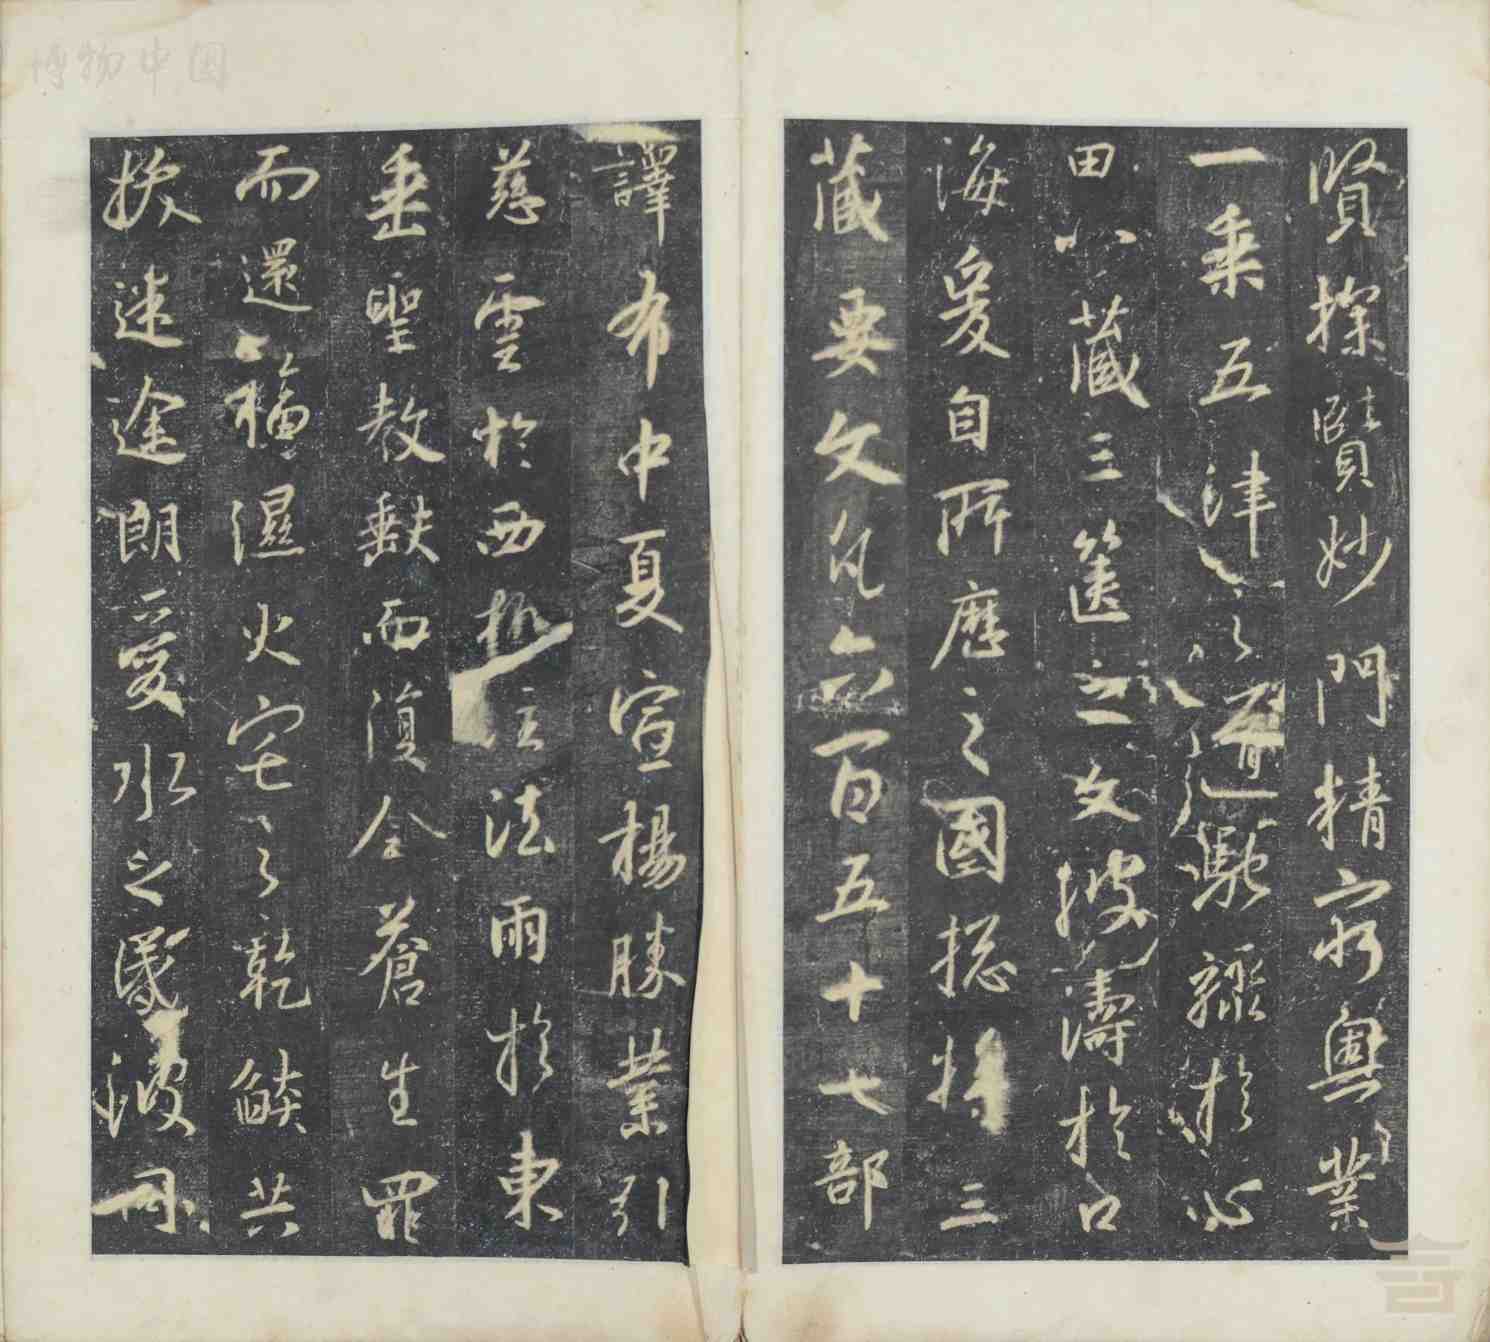 博物中国
賢探賾妙門精窮奧業
一乘五律之道馳驟於心
田八藏三篋之文波濤於口
海爰自所歷之國摠將三
藏要文凡六百五十七部
譯布中夏宣揚勝業引
慈雲於西極注法雨於東
垂聖教缺而復全蒼生罪
而還福濕火宅之乾焰共
拔迷途朗愛水之昏波同